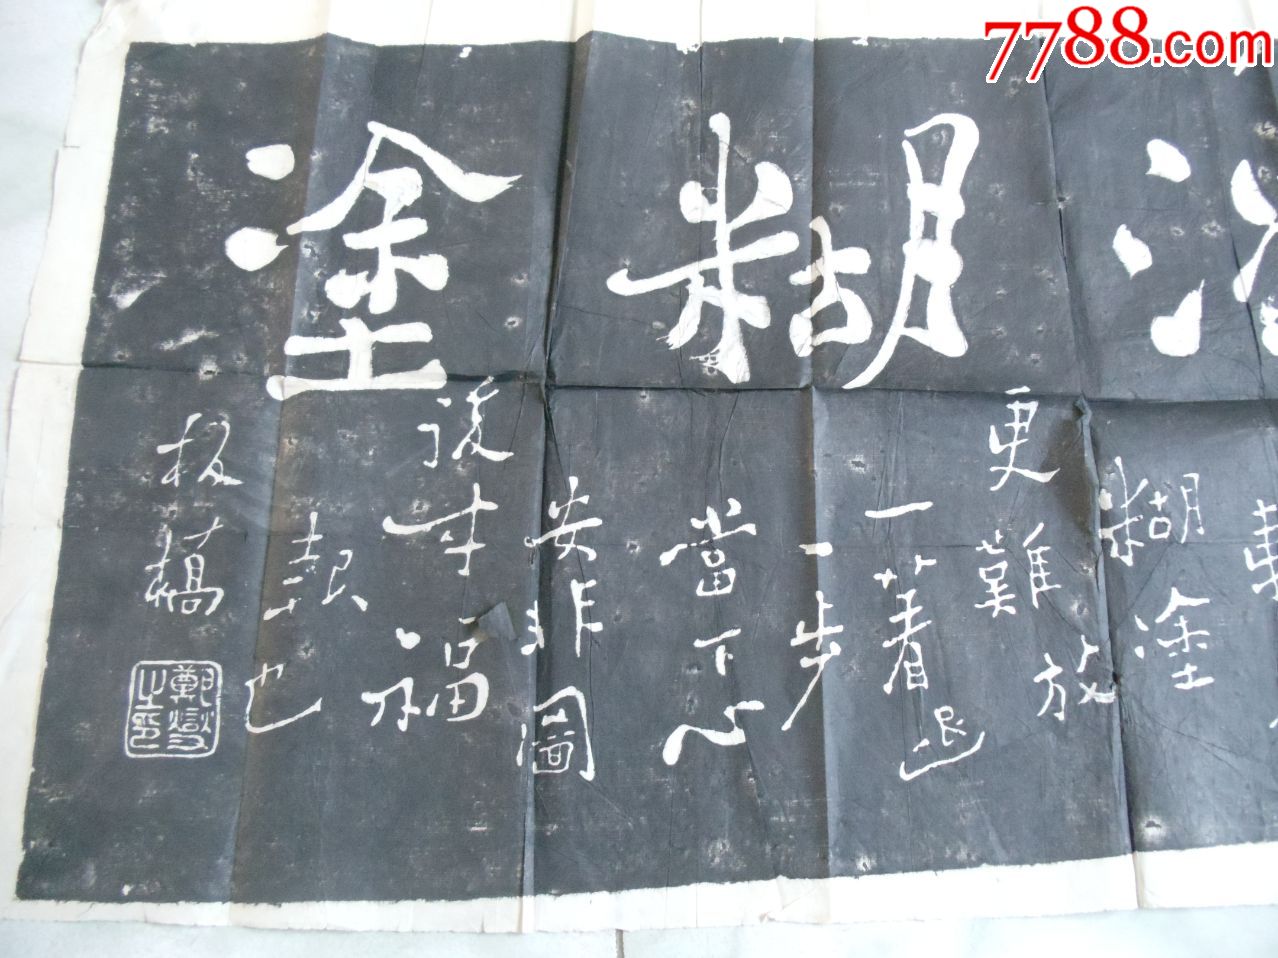 7788.com
糊塗
糊塗
更難放
一著退
一步
當下心
安非圖
後来福
報也
板橋
鄭燮
之印